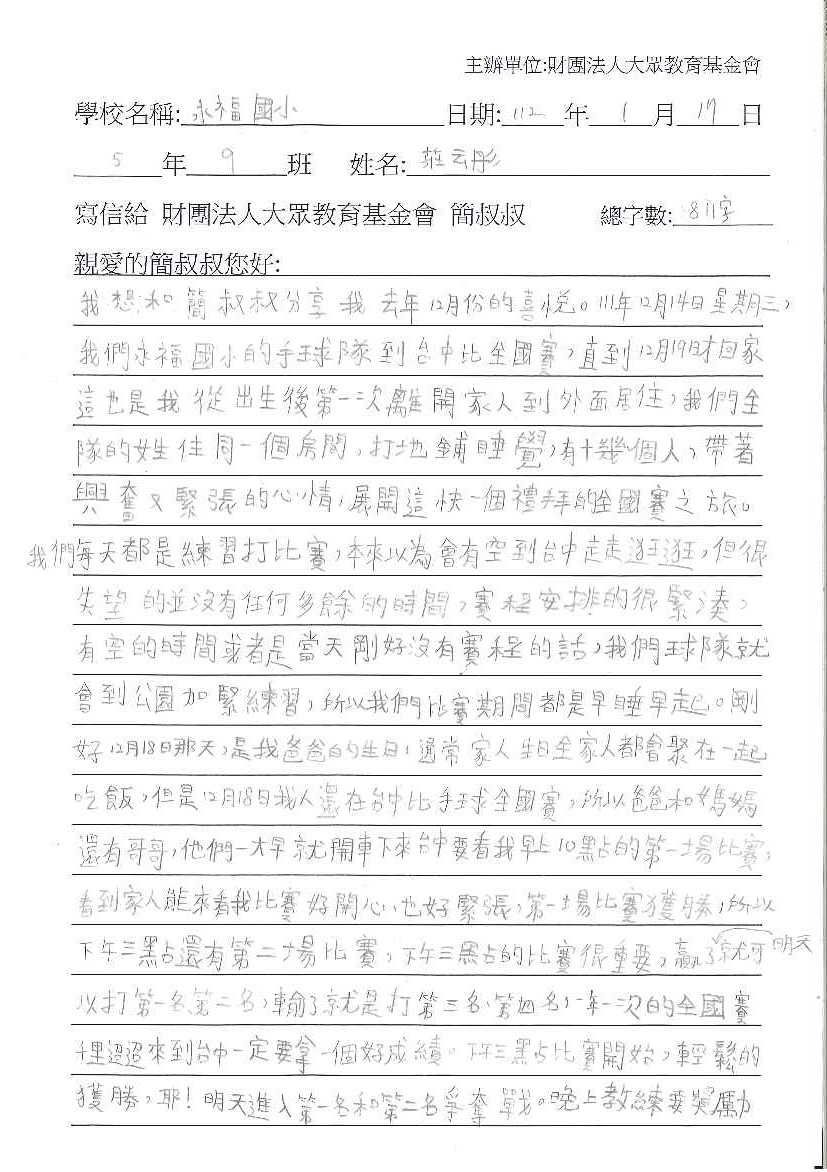 主辦單位:財團法人大眾教育基金會
學校名稱: 永福國小 日期: 112 年 1 月 17 日
5 年 9 班 姓名: 莊云彤
寫信給 財團法人大眾教育基金會 簡叔叔 總字數: 811字
親愛的簡叔叔您好:
我想和簡叔叔分享我去年12月份的喜悅。111年12月14日星期三,
我們永福國小的手球隊到台中比全國賽,直到12月19日才回家
這也是我從出生後第一次離開家人到外面居住,我們全
隊的女生住同一個房間,打地鋪睡覺,有十幾個人,帶著
興奮又緊張的心情,展開這快一個禮拜的全國賽之旅。
我們每天都是練習打比賽,本來以為會有空到台中走走逛逛,但很
失望的並沒有任何多餘的時間,賽程安排的很緊湊,
有空的時間或者是當天剛好沒有賽程的話,我們球隊就
會到公園加緊練習,所以我們比賽期間都是早睡早起。剛
好12月18日那天,是我爸爸的生日,通常家人生日全家人都會聚在一起
吃飯,但是12月18日我人還在台中比手球全國賽,所以爸爸和媽媽
還有哥哥,他們一大早就開車下來台中要看我早上10點的第一場比賽,
看到家人能來看我比賽好開心也好緊張,第一場比賽獲勝,所以
下午三點還有第二場比賽,下午三點的比賽很重要,贏了就可明天
以打第一名、第二名,輸了就是打第三名、第四名,一年一次的全國賽
千里迢迢來到台中一定要拿一個好成績。下午三點比賽開始,輕鬆的
獲勝,耶!明天進入第一名和第二名爭奪戰。晚上教練要獎勵